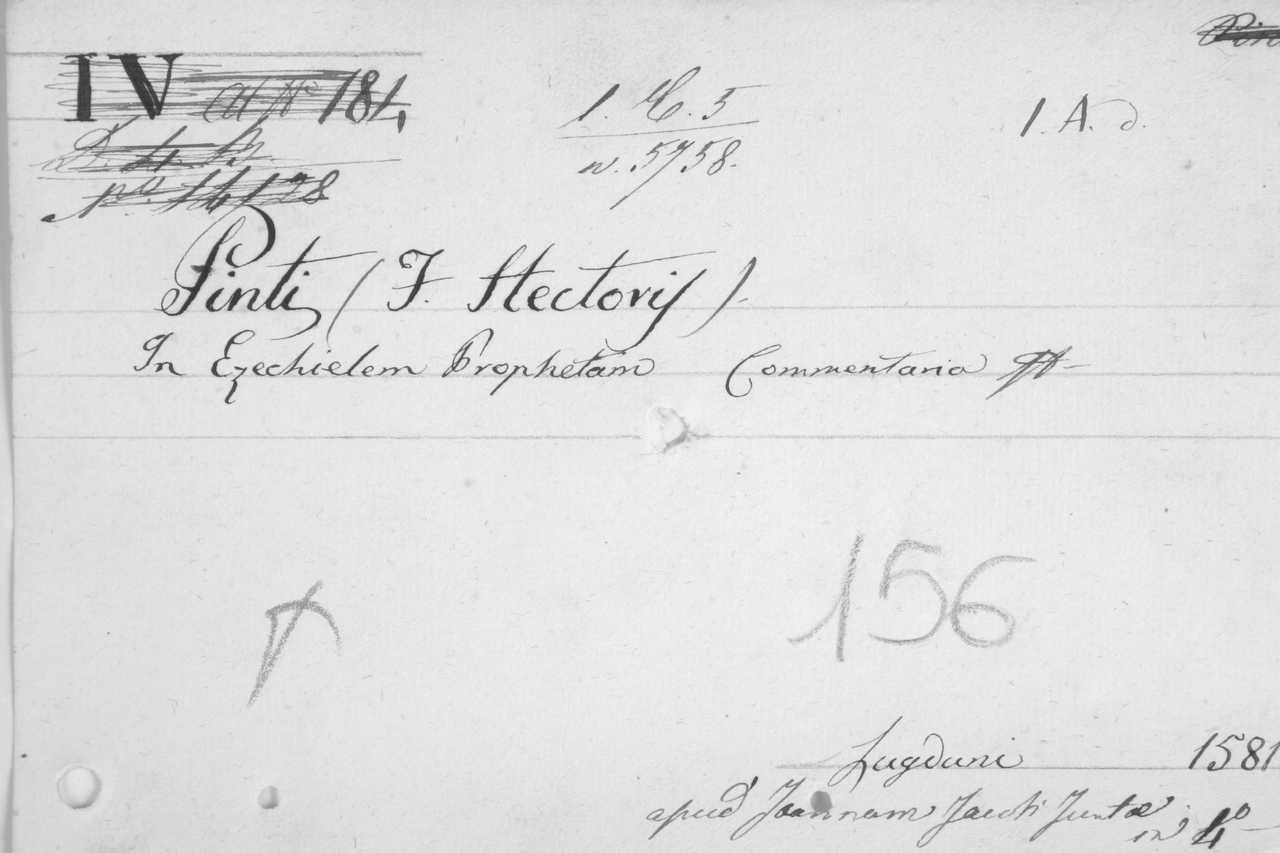 IV Cat Nº 184
D. 4. B.
nº. 14128
1. C. 5
n. 5758.
1. A. d.
Pinti (F. Hectoris).
In Ezechielem Prophetam Commentaria
156
Lugduni 1581
apud Joannam Jacobi Juntæ
in 4º